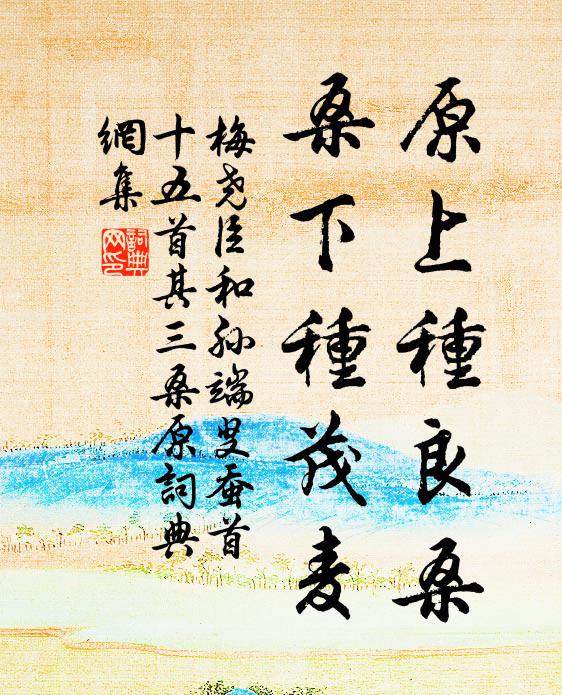 原上種良桑
桑下種茂麥
梅堯臣和孫端叟蚕首
十五首其三桑原詞典
網集
詞典
网印